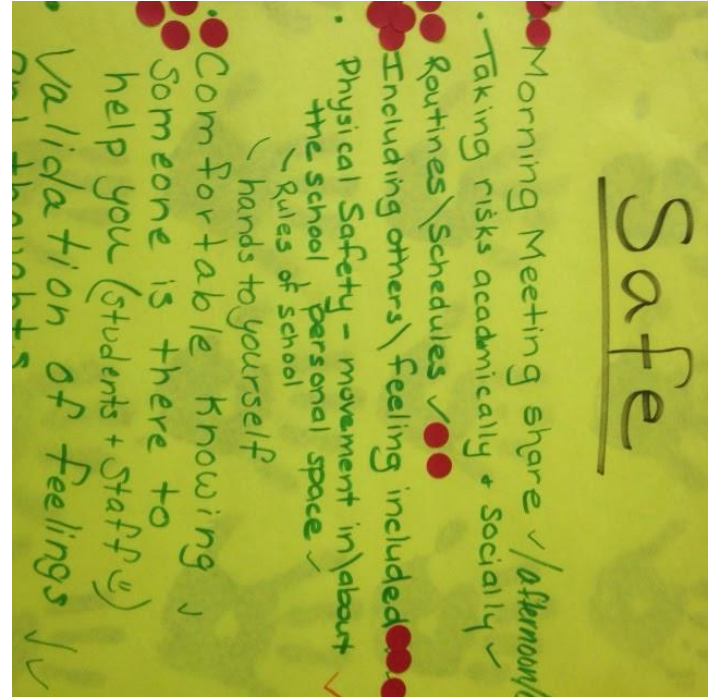 Safe
• Morning Meeting share ✓/afternoon/
• Taking risks acadmically + Socially ✓
Routines\Schedules ✓
Including others\feeling included
• Physical Safety - movement in\about
the school, personal space ✓
✓ Rules of school
✓ hands to yourself
• Comfortable knowing ✓
Someone is there to
help you (Students + Staff ☺)
• Validation of feelings ✓✓
and thoughts